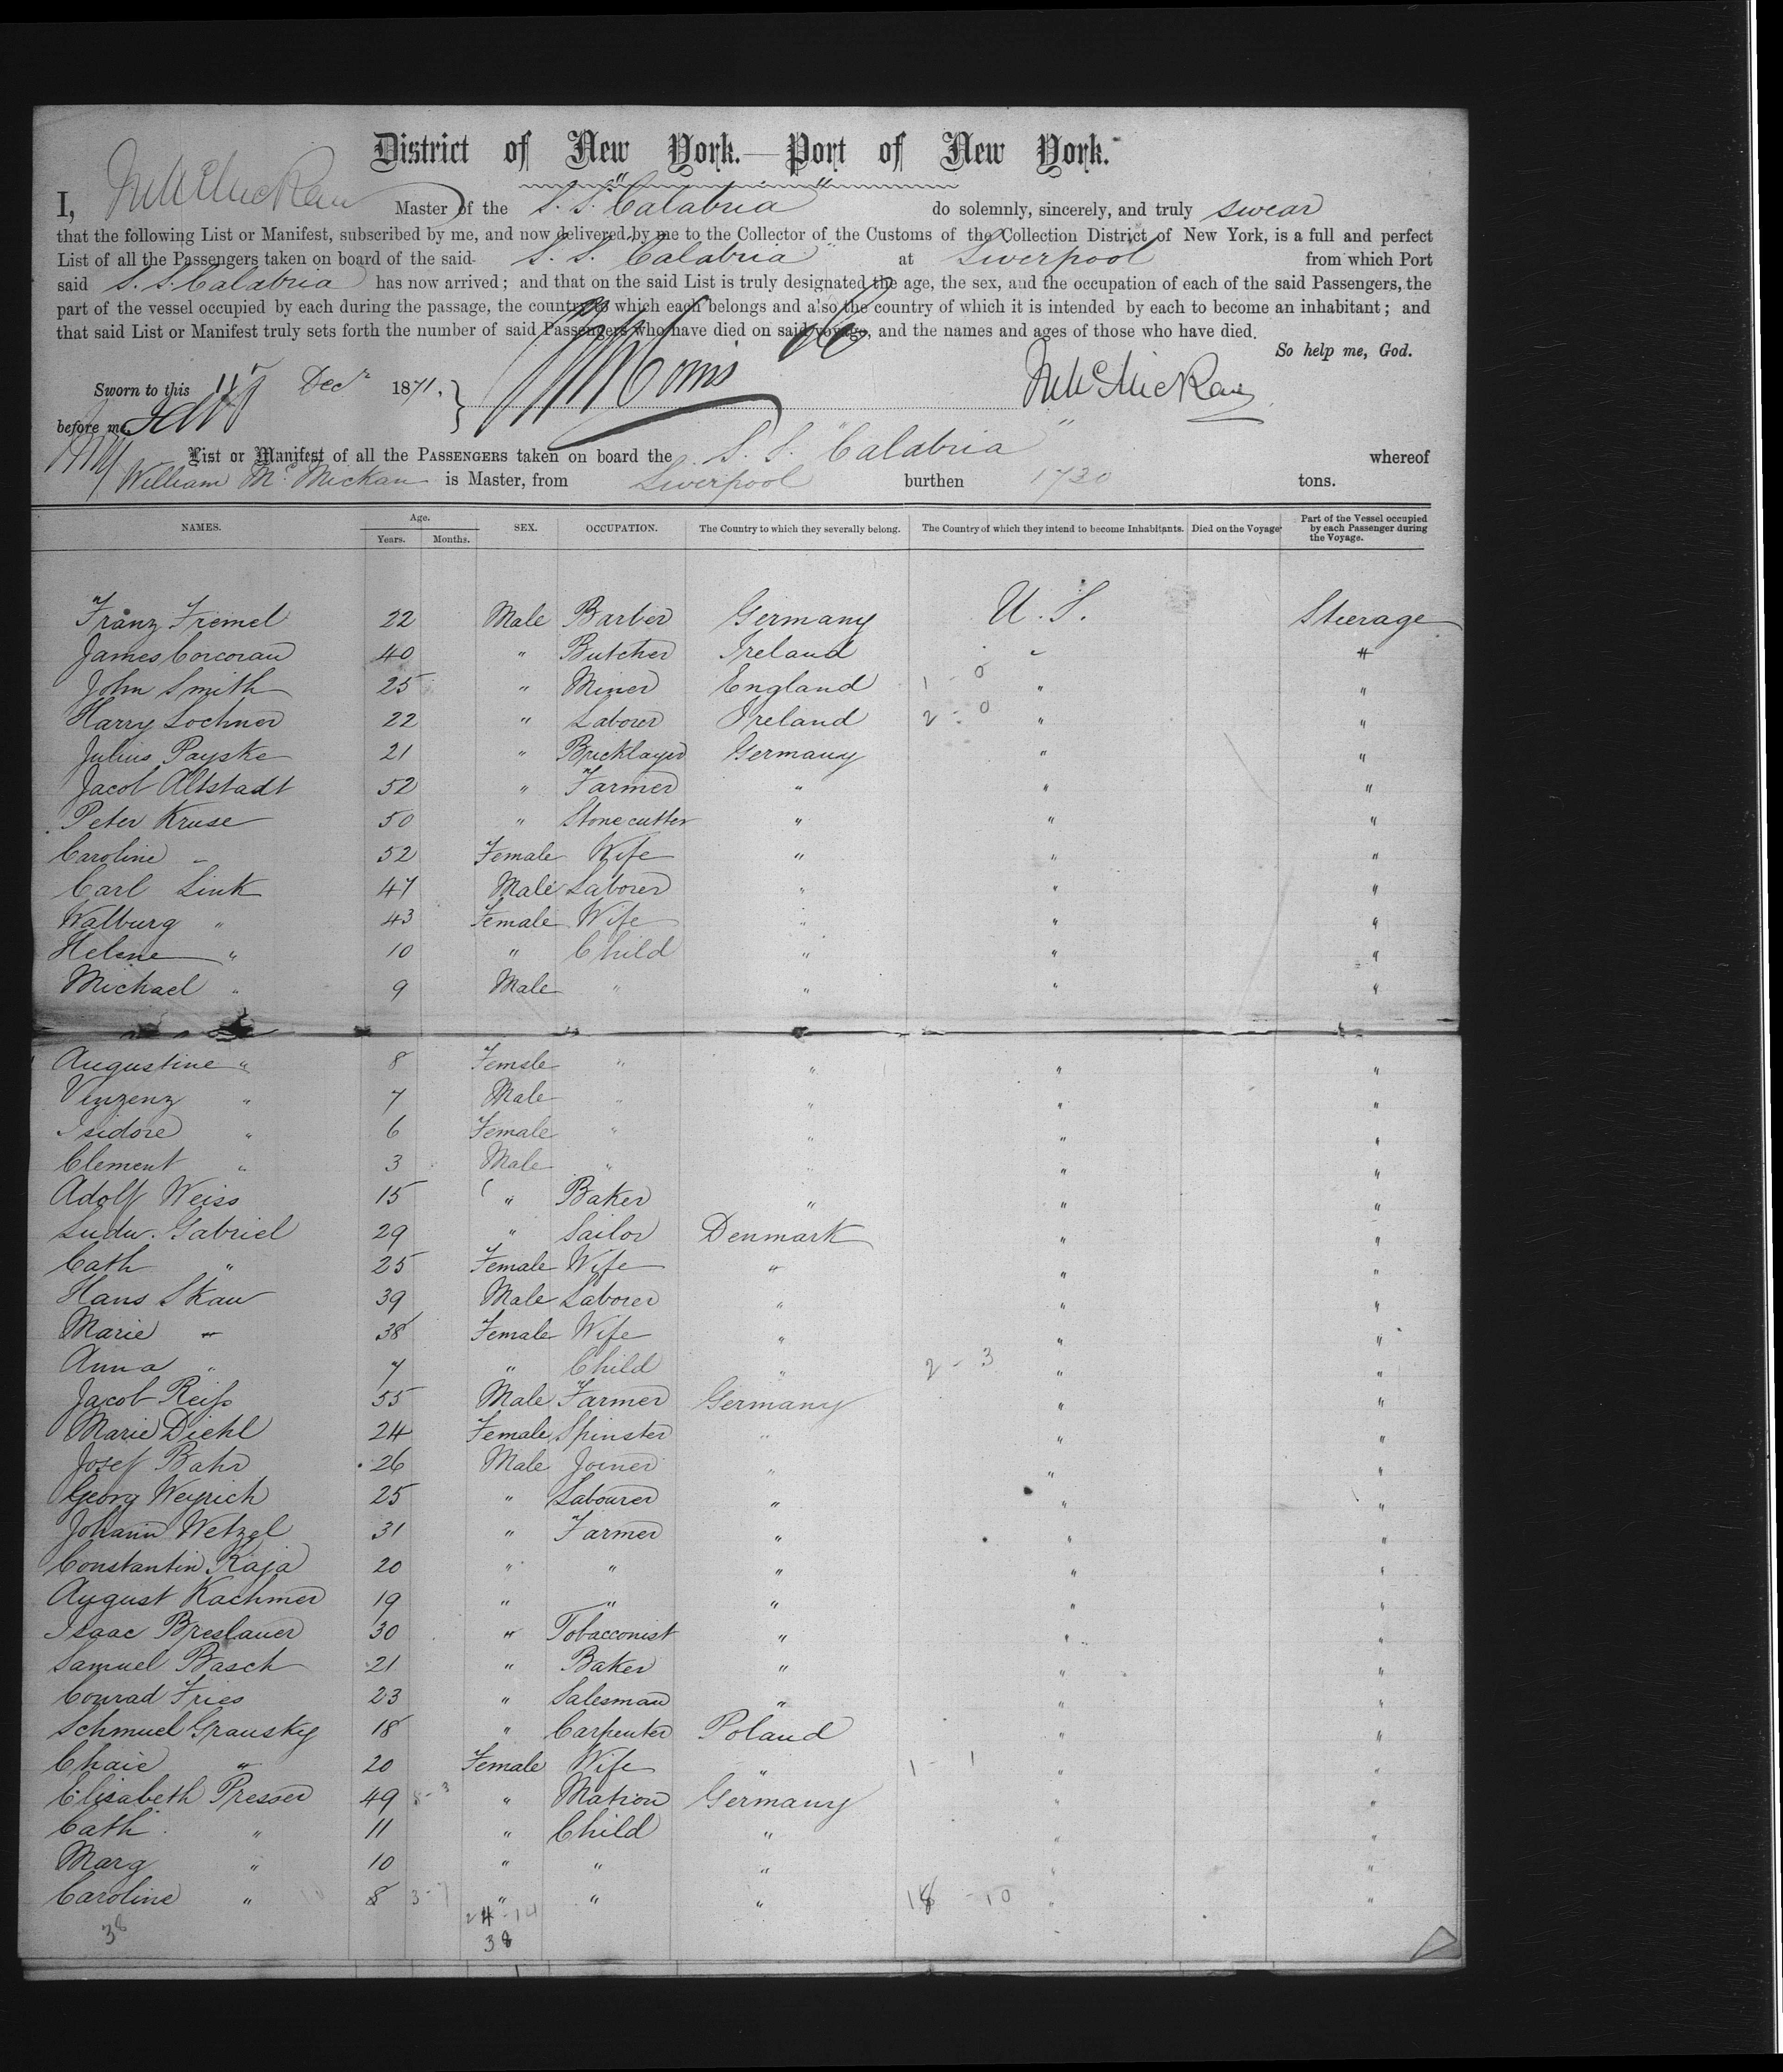 District of New York.—Port of New York.
I, Wm McMickan Master of the S. S. "Calabria" do solemnly, sincerely, and truly swear
that the following List or Manifest, subscribed by me, and now delivered by me to the Collector of the Customs of the Collection District of New York, is a full and perfect
List of all the Passengers taken on board of the said S. S. Calabria at Liverpool from which Port
said S. S. Calabria has now arrived; and that on the said List is truly designated the age, the sex, and the occupation of each of the said Passengers, the
part of the vessel occupied by each during the passage, the country to which each belongs and also the country of which it is intended by each to become an inhabitant; and
that said List or Manifest truly sets forth the number of said Passengers who have died on said voyage, and the names and ages of those who have died.
So help me, God.
Sworn to this 11 Decr 1871, Wm McMickan
before me
List or Manifest of all the PASSENGERS taken on board the S. S. "Calabria" whereof
William McMickan is Master, from Liverpool burthen 1730 tons.
NAMES. Age. Years. Months. SEX. OCCUPATION. The Country to which they severally belong. The Country of which they intend to become Inhabitants. Died on the Voyage Part of the Vessel occupied by each Passenger during the Voyage.
Franz Fremel 22 Male Barber Germany U. S. Steerage
James Corcoran 40 " Butcher Ireland " "
John Smith 25 " Miner England 1 - 0 " "
Harry Lochner 22 " Laborer Ireland 2 - 0 " "
Julius Payske 21 " Bricklayer Germany " "
Jacob Altstadt 52 " Farmer " " "
Peter Kruse 50 " Stonecutter " " "
Caroline " 52 Female Wife " " "
Carl Link 47 Male Laborer " " "
Walburg " 43 Female Wife " " "
Helene " 10 " Child " " "
Michael " 9 Male " " " "
Augustine " 8 Female " " " "
Vinzenz " 7 Male " " " "
Isidore " 6 Female " " " "
Clement " 3 Male " " " "
Adolf Weiss 15 " Baker " " "
Ludw. Gabriel 29 " Sailor Denmark " "
Cath " 25 Female Wife " " "
Hans Skau 39 Male Laborer " " "
Marie " 38 Female Wife " " "
Anna " 7 " Child " 2 - 3 " "
Jacob Reiß 55 Male Farmer Germany " "
Marie Diehl 24 Female Spinster " " "
Josef Bahr 26 Male Joiner " " "
Georg Weyrich 25 " Labourer " " "
Johann Wetzel 31 " Farmer " " "
Constantin Raja 20 " " " " "
August Kachmer 19 " " " " "
Isaac Breslauer 30 " Tobacconist " " "
Samuel Basch 21 " Baker " " "
Conrad Fries 23 " Salesman " " "
Schmuel Gransky 18 " Carpenter Poland " "
Chaie " 20 Female Wife " 1 - 1 " "
Elisabeth Presser 49 " Matron Germany " "
Cath " 11 " Child " " "
Marg " 10 " " " " "
Caroline " 8 3-7 " " " 18 - 10 " "
24-14
38 38